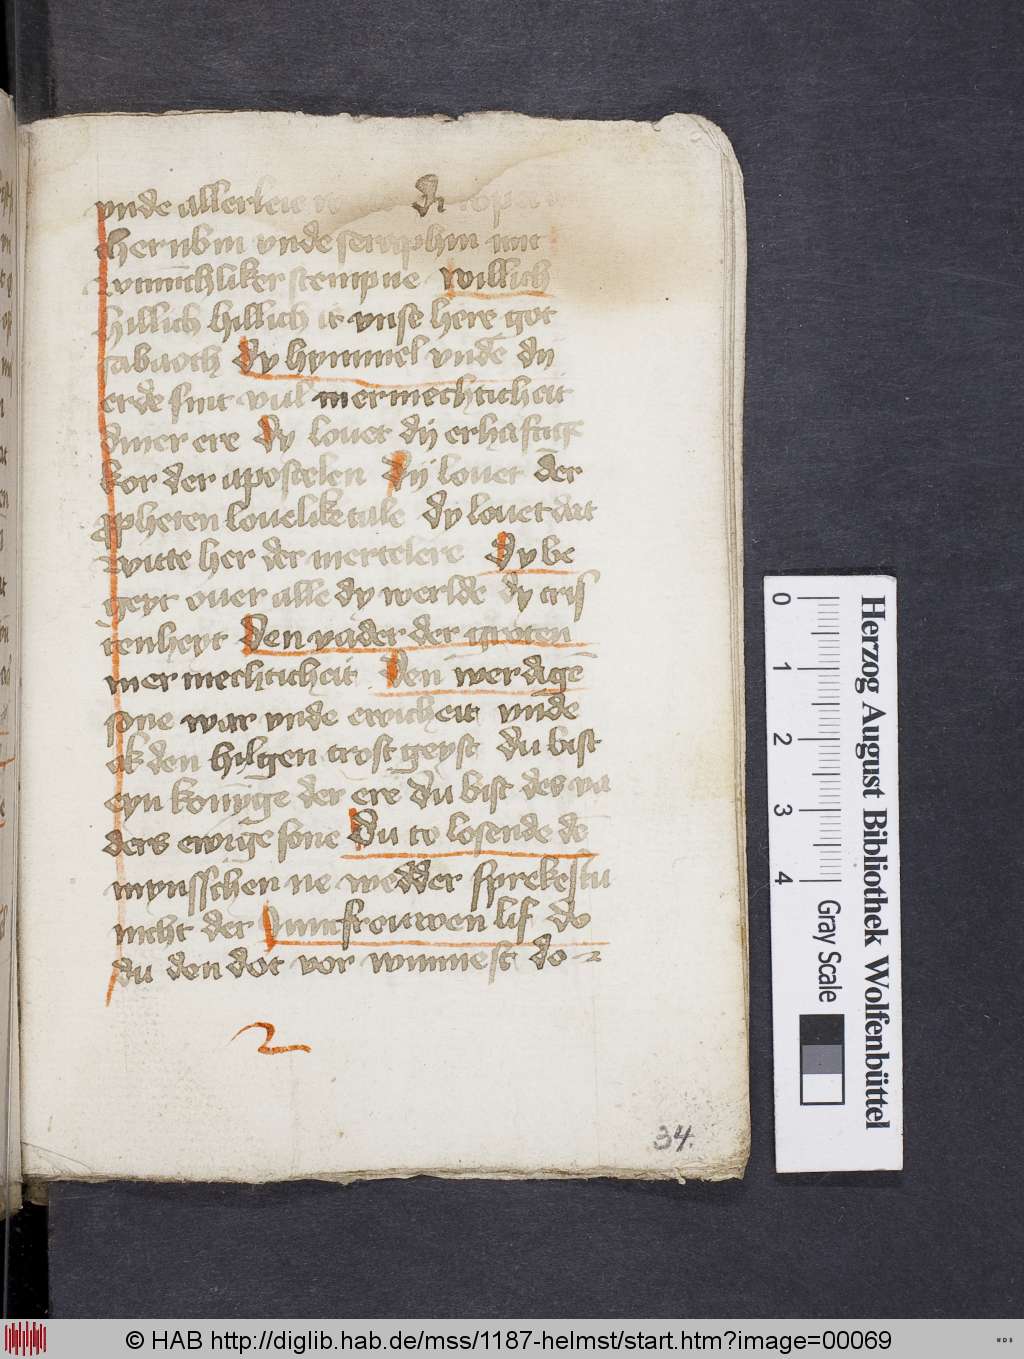 vnde allerleie di ropen
cherubin vnde seraphin mit
wunnichliker stempne willich
hillich hillich is vnse here got
sabaoth dy hymmel vnde dy
erde sint vul mermechticheit
diner ere dy louet dij erhaftige
kor der apostelen dij louet der
propheten louelike tale dy louet dat
witte her der mertelere dy be
geyt ouer alle dy werlde dy cris
tenheyt Den vader der groten
mermechticheit Den werdagē
sone war vnde ewicheit vnde
ok den hilgen trost geyst du bist
eyn konyge der ere du bist des va
ders ewige sone Du to losende dē
mynsschen ne wedder sprekestu
nicht der Juncfrouwen lif do
du den dot vor wunnest do
34.
0 1 2 3 4
Gray Scale
Herzog August Bibliothek Wolfenbüttel
© HAB http://diglib.hab.de/mss/1187-helmst/start.htm?image=00069
WDB